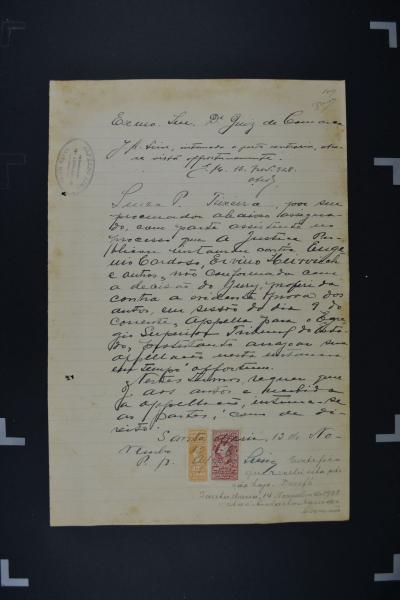 Exmo. Snr. Dr. Juiz de Comarca
J. A. Sim, intimada a parte contraria, abra-
se vista opportunamente.
S. M. 13. Nov. 928.
Luiza P. Teixeira, por seu
procurador abaixo assigna-
do, como parte assistente no
processo que a Justiça Pu-
blica move contra Euge-
nio Cardoso, Ervino
e outros, não conformada com
a decisão do Jury, proferida
contra a evidente prova dos
autos, em sessão do dia 9 do
corrente, appella para o Egre-
gio Superior Tribunal do Esta-
do, protestando arrazoar sua
appellação nesta instancia
em tempo opportuno.
Nestes termos, requer que
J. aos autos e recebida
a appellação, intime-se
as partes, como de di-
reito.
Santa Maria, 13 de No-
vembro
P. p.
Certifico
que recebi esta pe-
hoje. Dou fé
Santa Maria, 14 Novembro de 1928
Escrivão